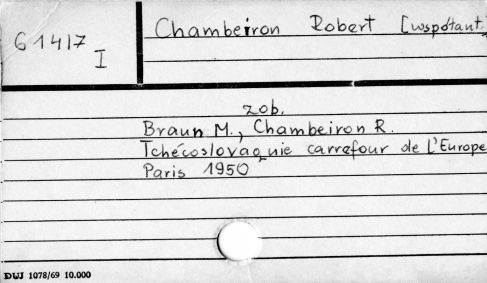 61417
I
Chambeiron Robert [wspótaut.]
zob.
Braun M., Chambeiron R.
Tchécoslovaquie carrefour de L'Europe
Paris 1950
DUJ 1078/69 10.000